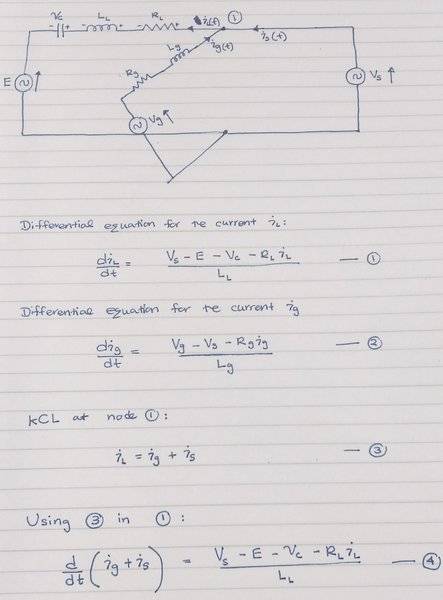 Vc LL RL iL(t) ①
- + + - + -
Lg ig(t) is(t)
Rg
E Vs
Vg
Differential equation for the current iL:
diL/dt = (Vs - E - Vc - RL iL)/LL — ①
Differential equation for the current ig
dig/dt = (Vg - Vs - Rg ig)/Lg — ②
KCL at node ①:
iL = ig + is — ③
Using ③ in ①:
d/dt (ig + is) = (Vs - E - Vc - RL iL)/LL — ④